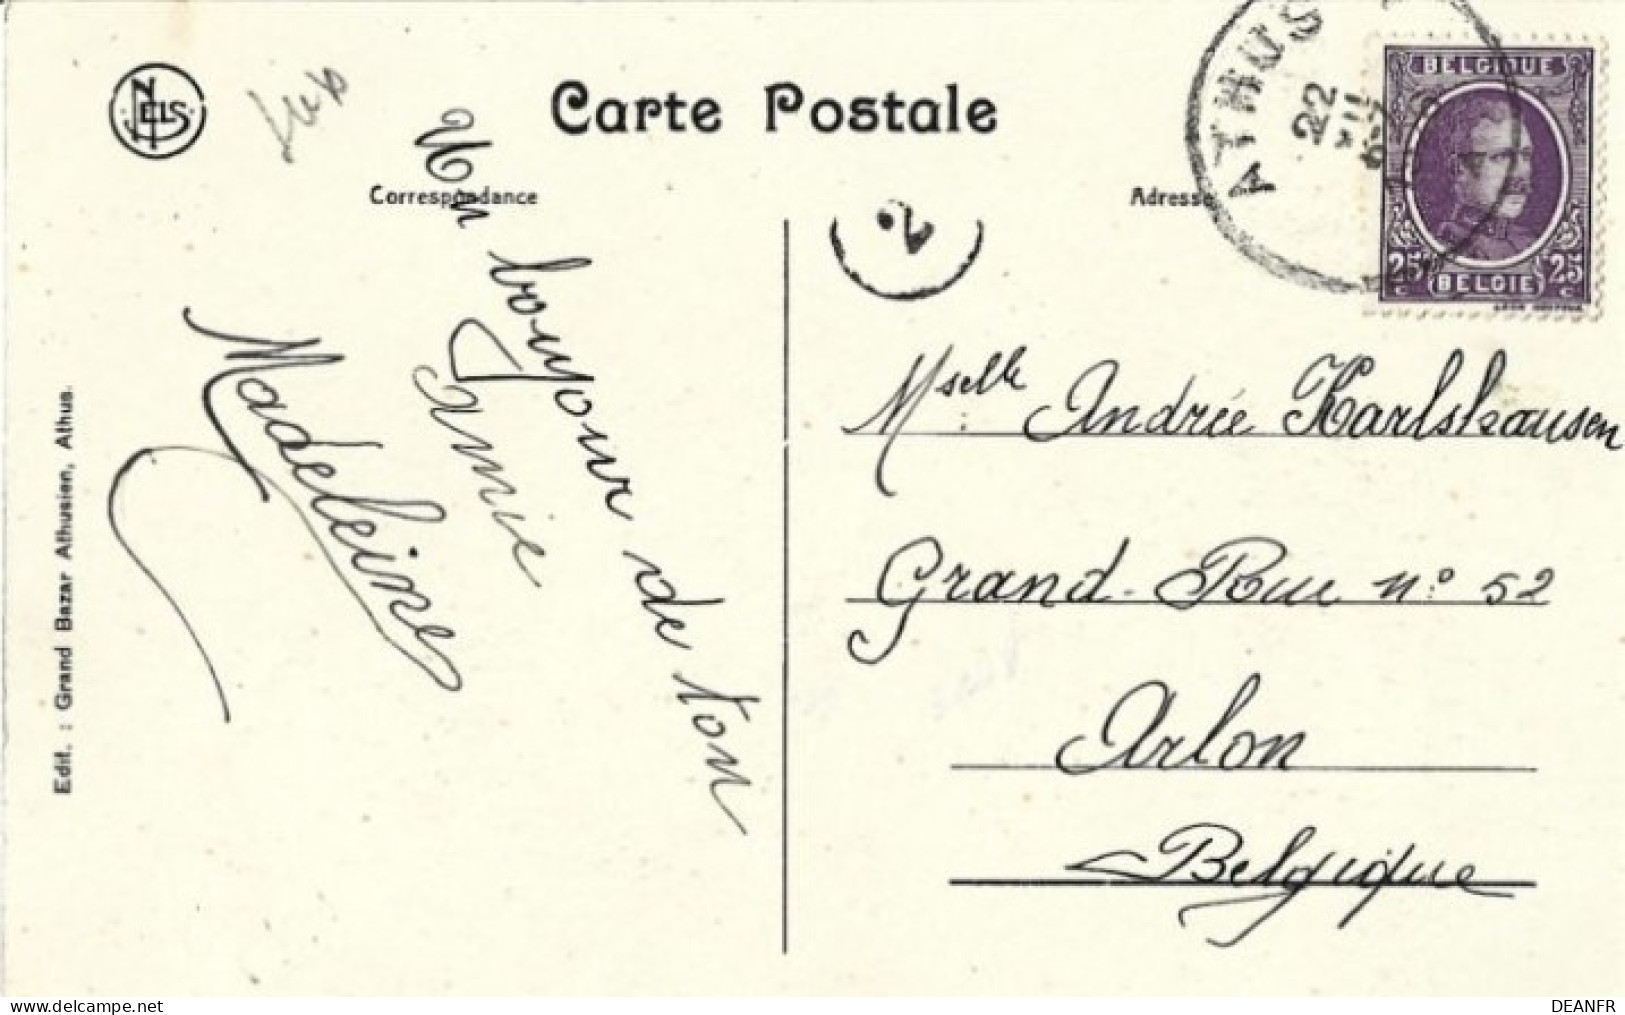 NELS
Carte Postale
Correspondance
Adresse
ATHUS
22
BELGIQUE
25 25
c c
BELGIE
Un bonjour de ton
amie
Madeleine
Mselle Andrée Karlshausen
Grand-Rue n° 52
Arlon
Belgique
Edit. : Grand Bazar Athusien, Athus.
www.delcampe.net
DEANFR